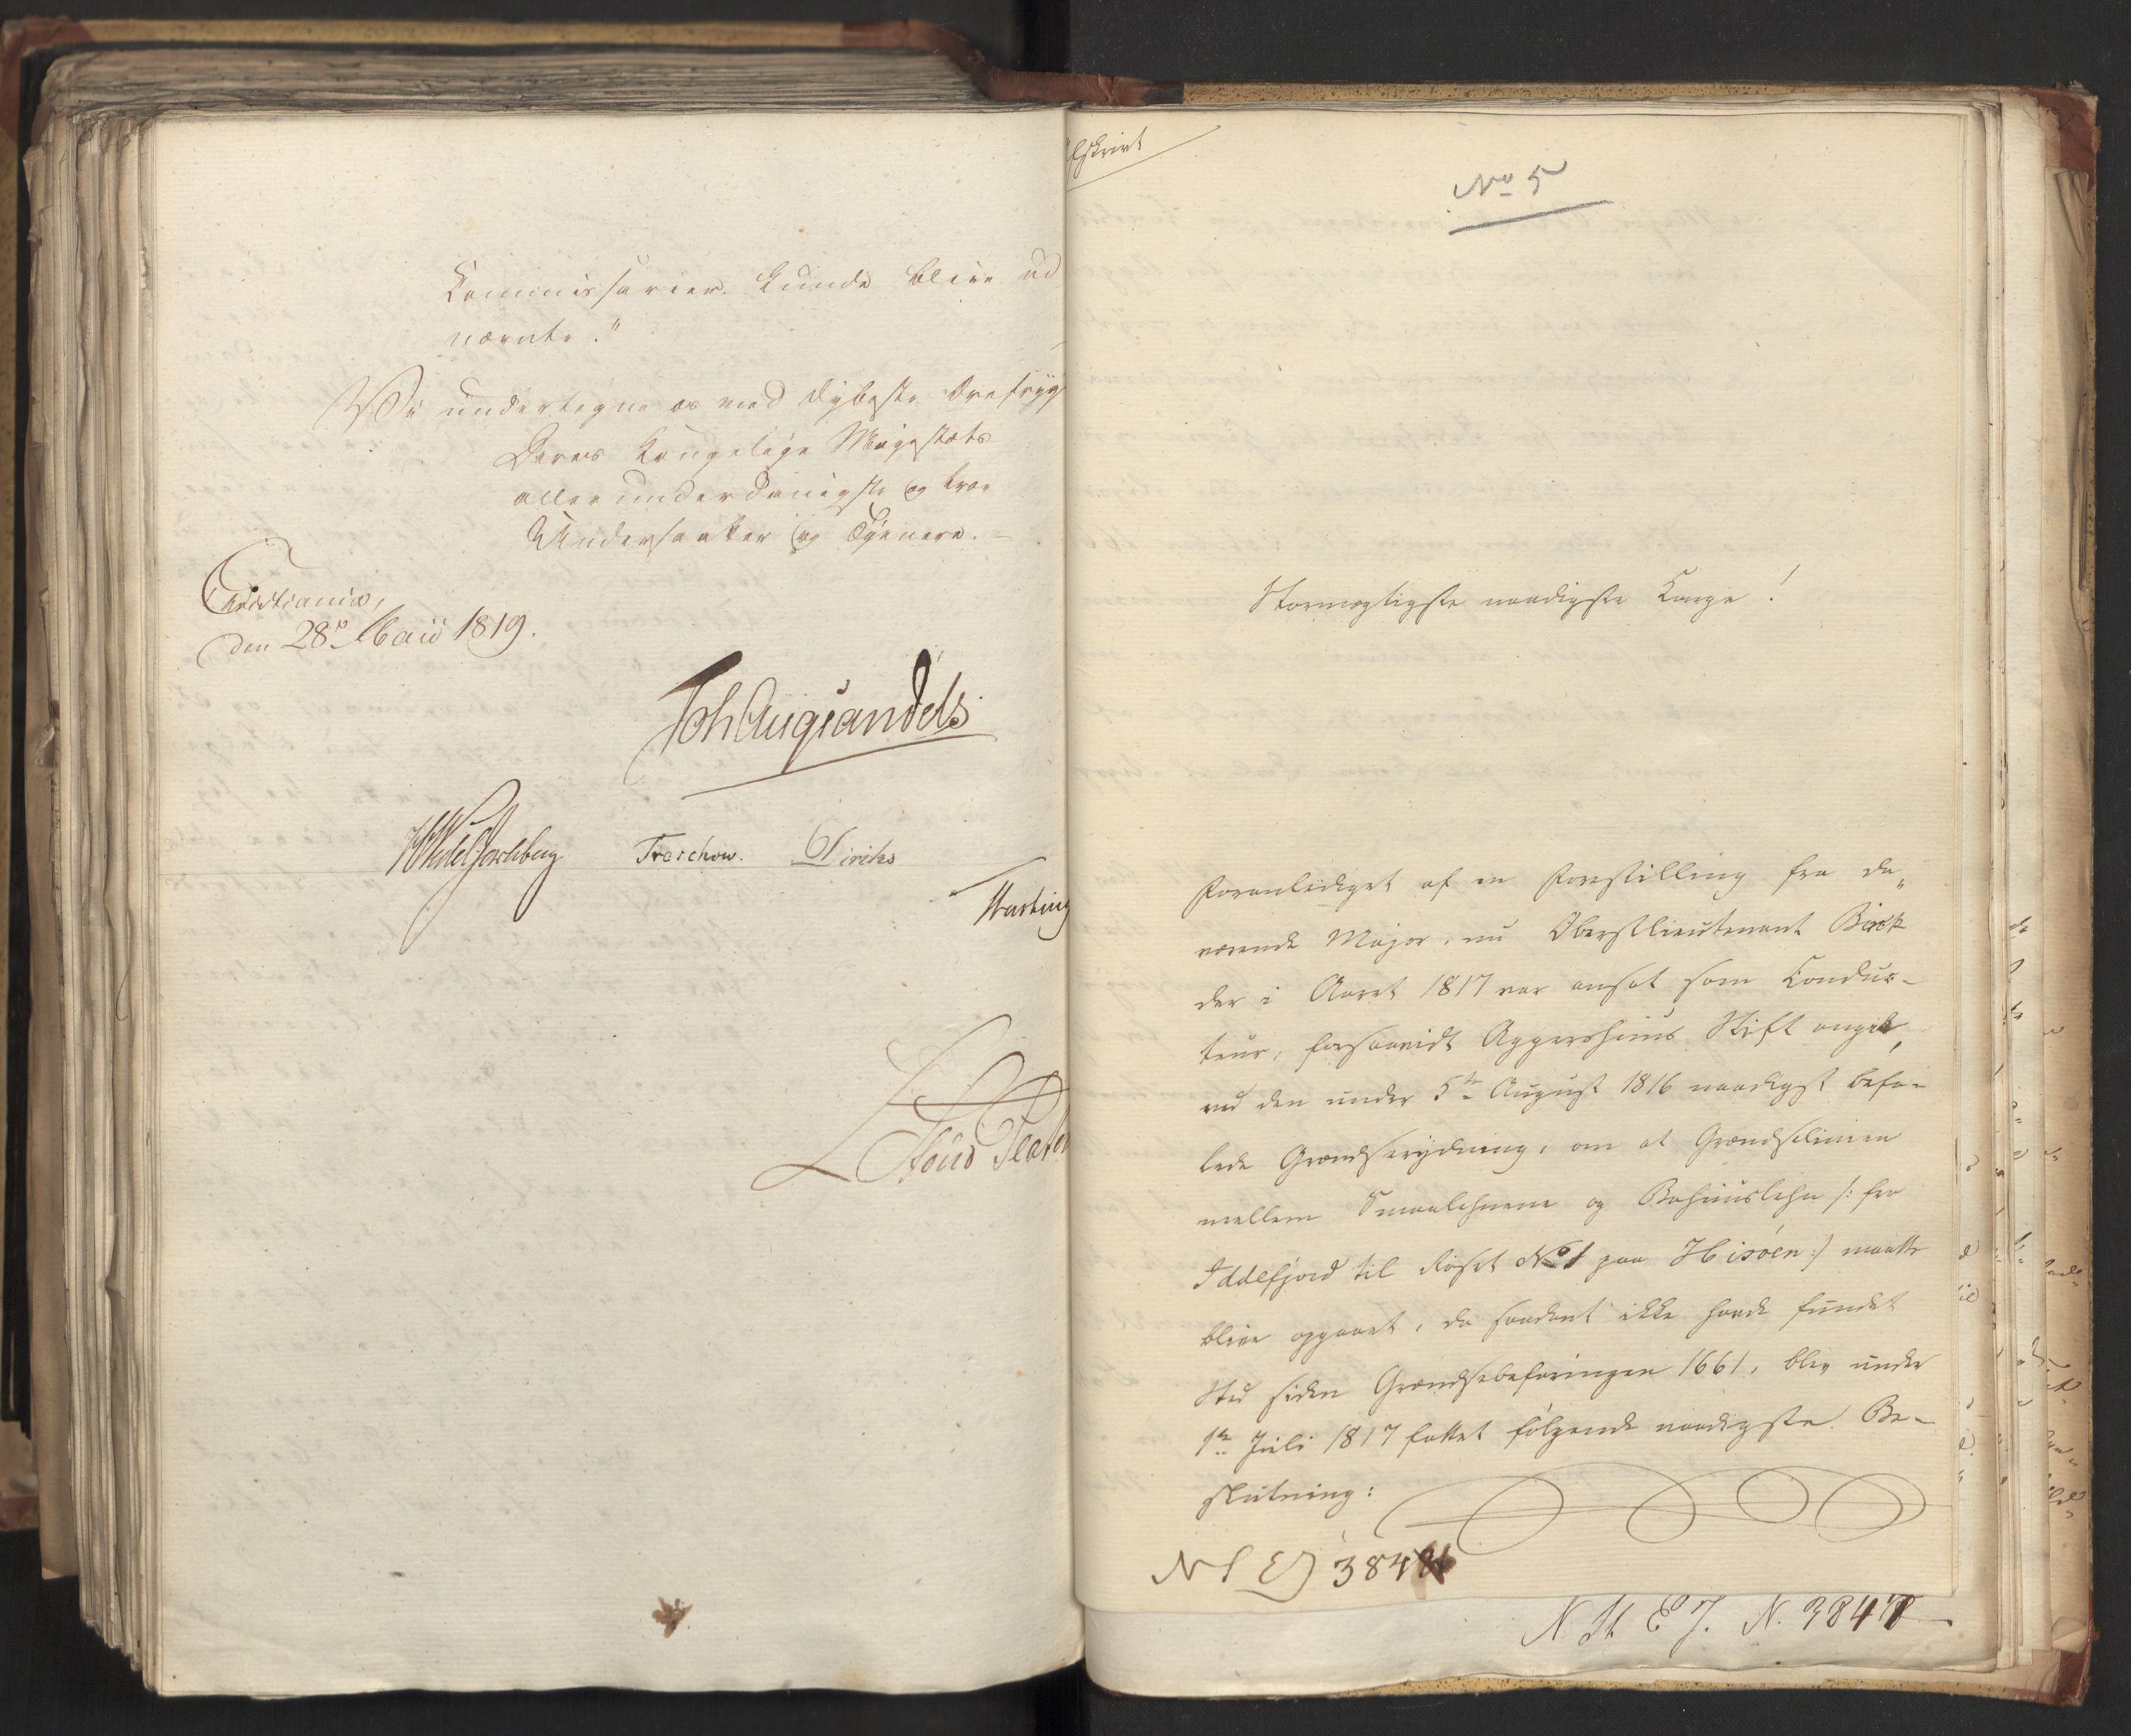 Commissarier kunde blive ud
nævnte."
Vi undertegne os med dybeste Ærefrygt
Deres Kongelige Majestæts
allerunderdanigste og troe
Undersaatter og Tjenere.
Christiania,
den 28de Maii 1819.
Joh Aug Sandels
HWedelJarlsberg Treschow. Diriks
Hartwig
Afskrivt
No 5
Stormægtigste naadigste Konge!
Foranlediget af en Forestilling fra da„
værende Major, nu Oberstlieutenant Birch
der i Aaret 1817 var ansat som Conduc-
teur, forsaavidt Aggershuus Stift angik,
ved den under 5te August 1816 naadigst befa-
lede Grændserydning, om at Grændselinien
mellem Smaalehnene og Bahuuslehn /: fra
Iddefjord til Røset No 1 paa Hisöen :/ maatte
blive opgaaet, da saadant ikke havde fundet
Sted siden Grændsebefaringen 1661, blev under
1te Juli 1817 fattet følgende naadigste Be-
slutning:
N St. E J. N. 3847